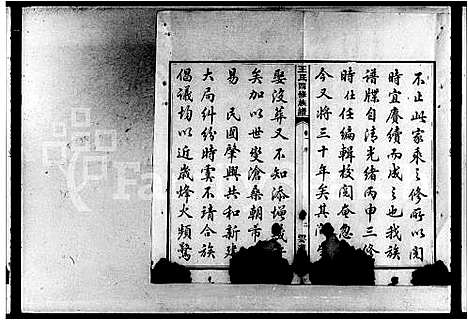 不止此家乘之修所以閱
時宜賡續而成之也我族
譜牒自清光緒丙申三修
時任任編輯校閱奄忽
今又將三十年矣其
王氏四修族譜
娶沒葬又不知添增幾
矣加以世變滄桑朝市
易 民國肇興共和新建
大局糾紛時虞不靖合族
倡議均以近歲烽火頻驚